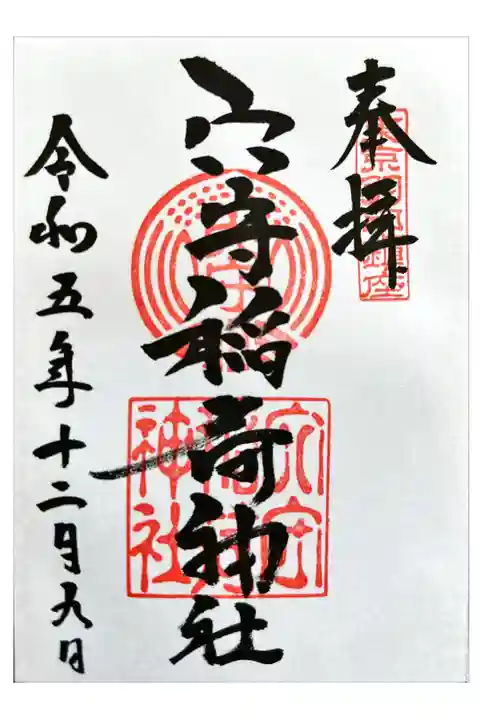 奉拝
穴守稲荷神社
令和五年十二月九日
穴守
稲荷
神社